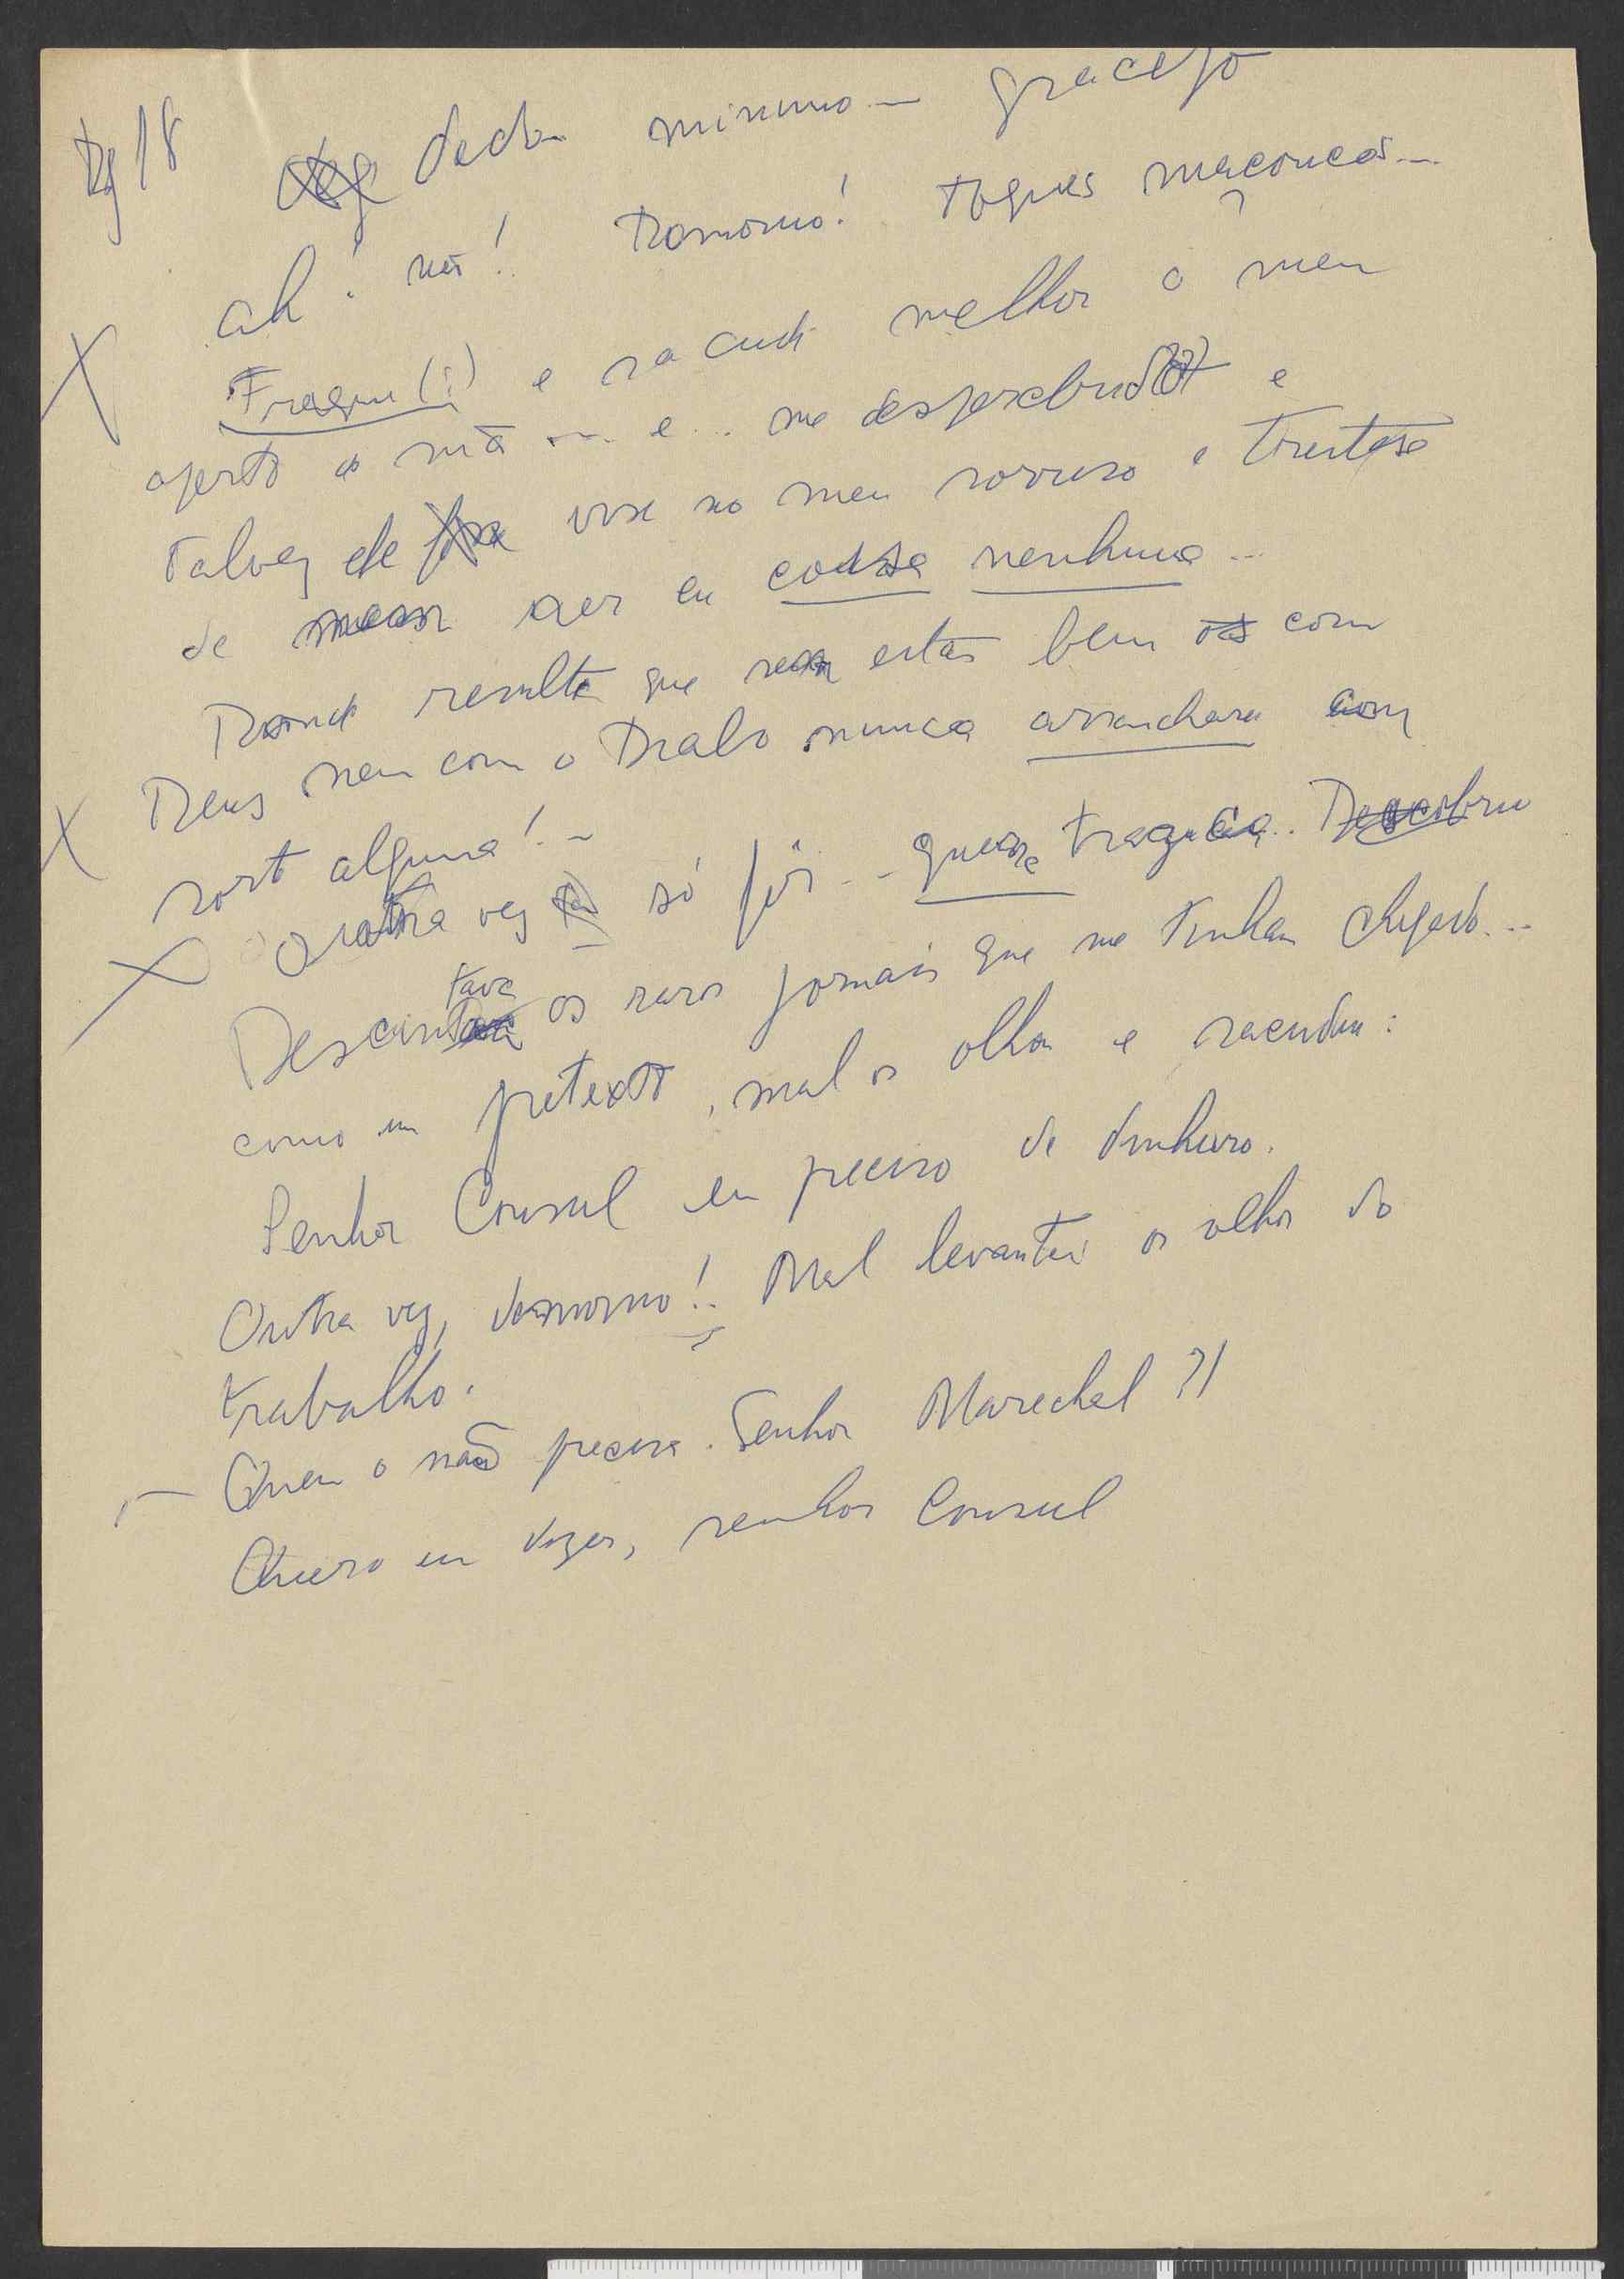 Pg 18 dedo mínimo – gracejo
ah! não! Demónio! toques maçonicos...
Fragm (?) e sacudi melhor o meu
aperto de mão ... e ... me despercebido e
Talvez ele visse no meu sorriso e tristeza
de não ser eu cousa nenhuma ...
Donde resulta que não estás bem com
Deus nem com o Diabo nunca arranchara com
sort alguma! –
Outra vez só foi ... quase tragica. Descobriu
tava
Descin os raros jornais que me tinham chegado...
como um pretexto, mal os olhou e sacudiu:
Senhor Consul eu preciso de dinheiro.
Outra vez, demonio!. Mal levantei os olhos do
trabalho.
Quem o não precisa. Senhor Marechal ?!
Quero eu dizer, senhor Consul